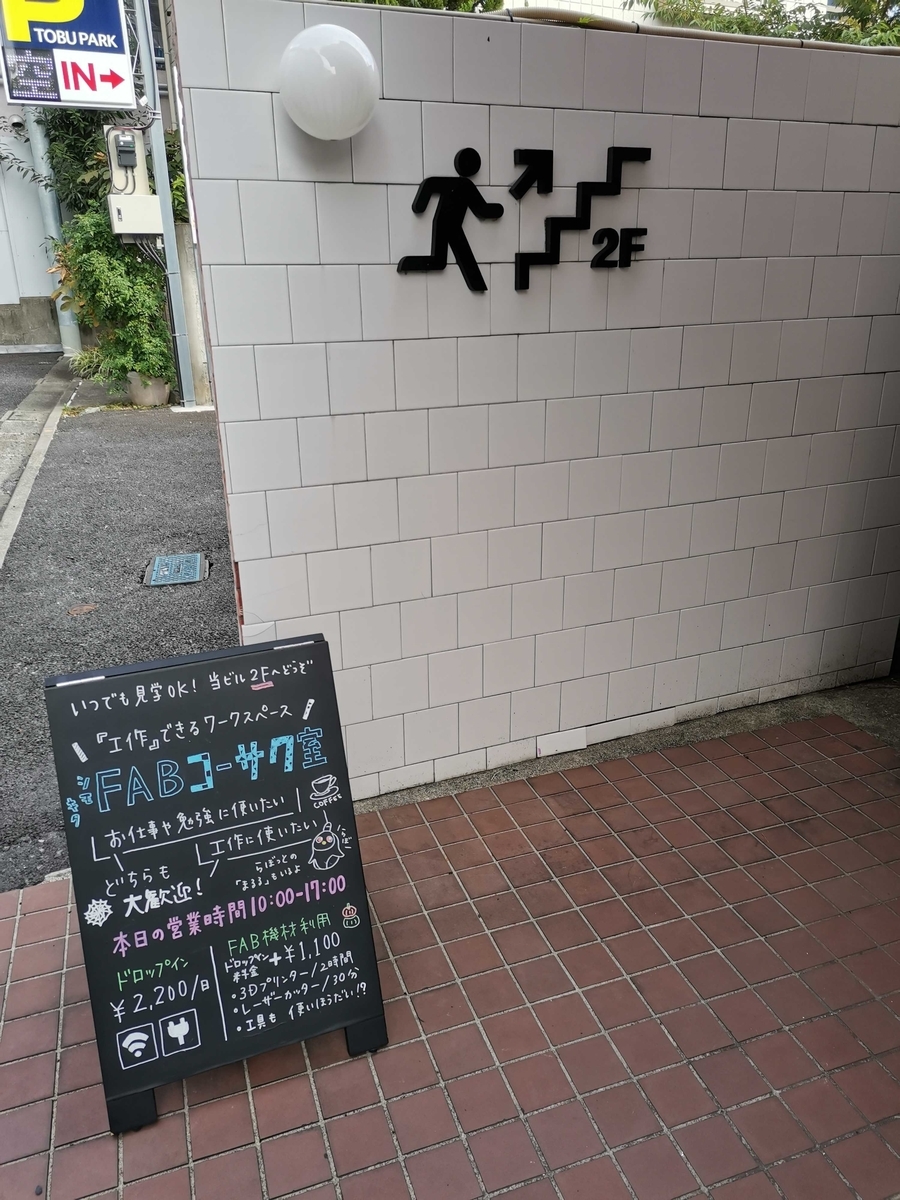 P
TOBU PARK
空 IN→
2F
いつでも見学OK! 当ビル2Fへどうぞ
『工作』できるワークスペース
シモキタ
FABコーサク室
COFFEE
お仕事や勉強に使いたい
工作に使いたい
らぼ
どちらも
大歓迎!
らぼっとの
「まるる」もいるよ
本日の営業時間10:00-17:00
ドロップイン
¥2,200/日
FAB機材利用
ドロップイン料金+¥1,100
・3Dプリンター/2時間
・レーザーカッター/30分
・工具も使いほうだい!?